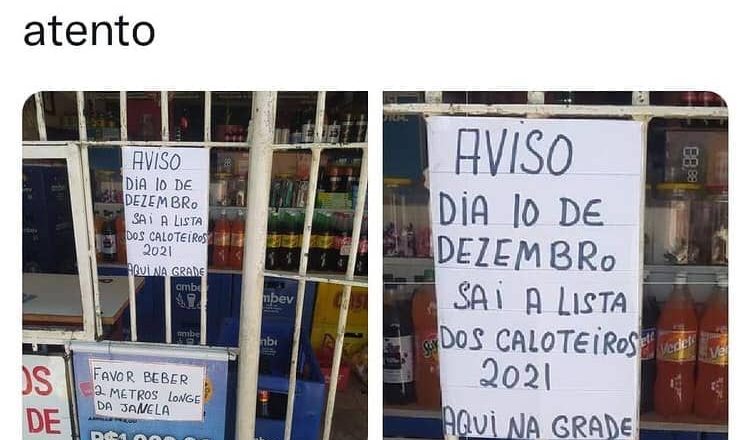 atento
AVISO
DIA 10 DE
DEZEMBRO
SAI A LISTA
DOS CALOTEIROS
2021
AQUI NA GRADE
ambev
ambev
FAVOR BEBER
2 METROS LONGE
DA JANELA
OS
DE
AVISO
DIA 10 DE
DEZEMBRO
SAI A LISTA
DOS CALOTEIROS
2021
AQUI NA GRADE
Vedete